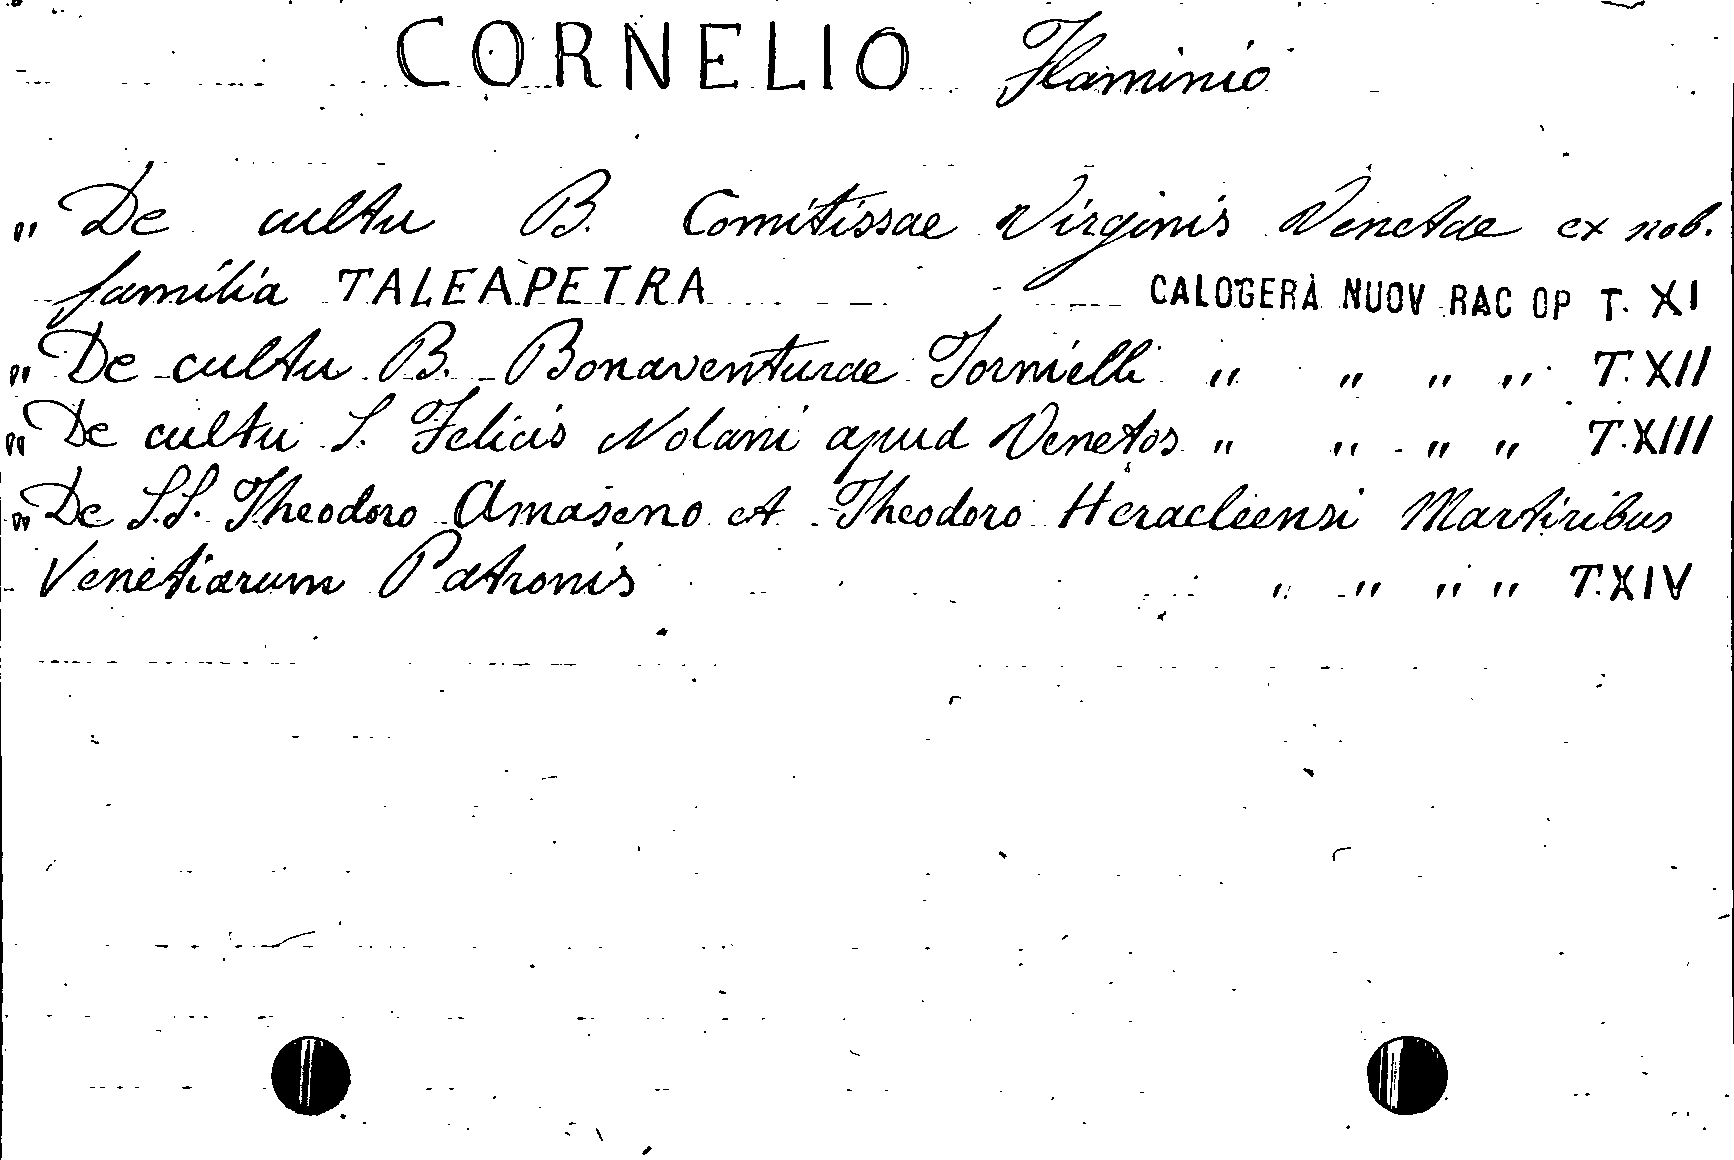 CORNELIO Flaminio
„ De cultu B. Comitissae Virginis Venetae ex nob.
familia TALEAPETRA CALOGERÀ NUOV RAC OP T. XI
„ De cultu B. Bonaventurae Tornielli „ „ „ „ T. XII
„ De cultu S. Felicis Nolani apud Venetos „ „ „ „ T. XIII
„ De S.S. Theodoro Amaseno et Theodoro Heracleensi Martiribus
Venetiarum Patronis „ „ „ „ T. XIV